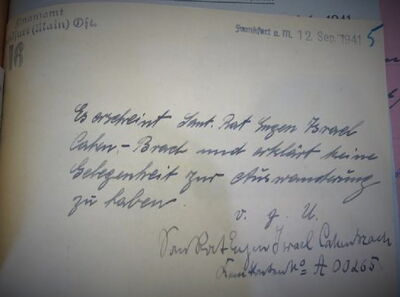 Finanzamt
(Main) Ost.
16
Frankfurt a. M. 12. Sep. 1941
5
1941
Es erscheint San. Rat Eugen Israel
Cahn-Brach und erklärt keine
Gelegenheit zur Auswanderung
zu haben.
v. g. U.
San Rat Eugen Israel Cahnbrach
Kennkarten No A 00265